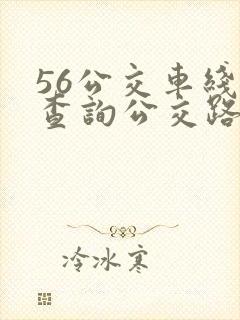 56公交車綫
查詢公交路
冷冰寒